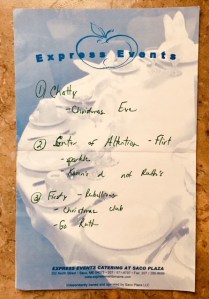 Express Events
① Chatty
- Christmas Eve
② Center of Attention - Flirt
- sparkle
- Kevin's & not Ruth's
③ Feisty - Rebellious
- Christmas club
- Go Ruth
EXPRESS EVENTS CATERING AT SACO PLAZA